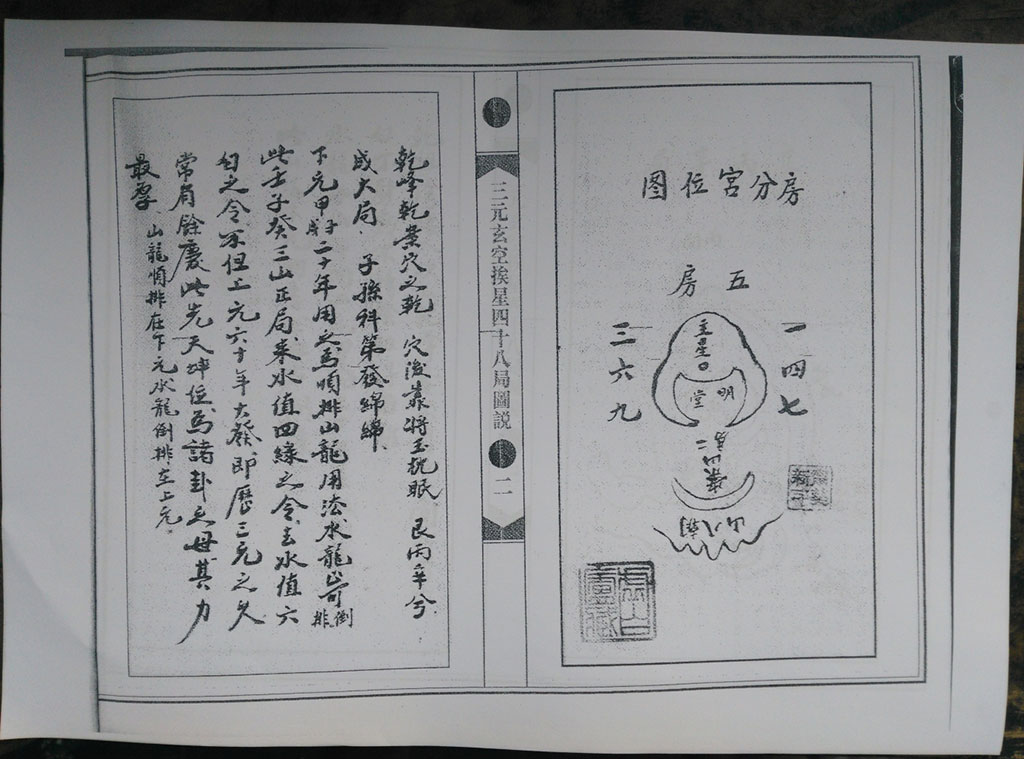 房分宮位图
五房
一四七
三六九
主星
明堂
案山二
三元玄空挨星四十八局圖説
二
乾峰乾案穴之乾穴後靠將玉枕眠艮丙辛兮
成大局子孫科第發綿綿
下元甲子二十年用之爲順排山龍用法水龍倒排
此壬子癸三山正局來水值四綠之令去水值六
白之令不但上元六十年大發即歷三元之久
常有餘慶此先天坤位爲諸卦之母其力
最厚山龍順排在下元水龍倒排在上元